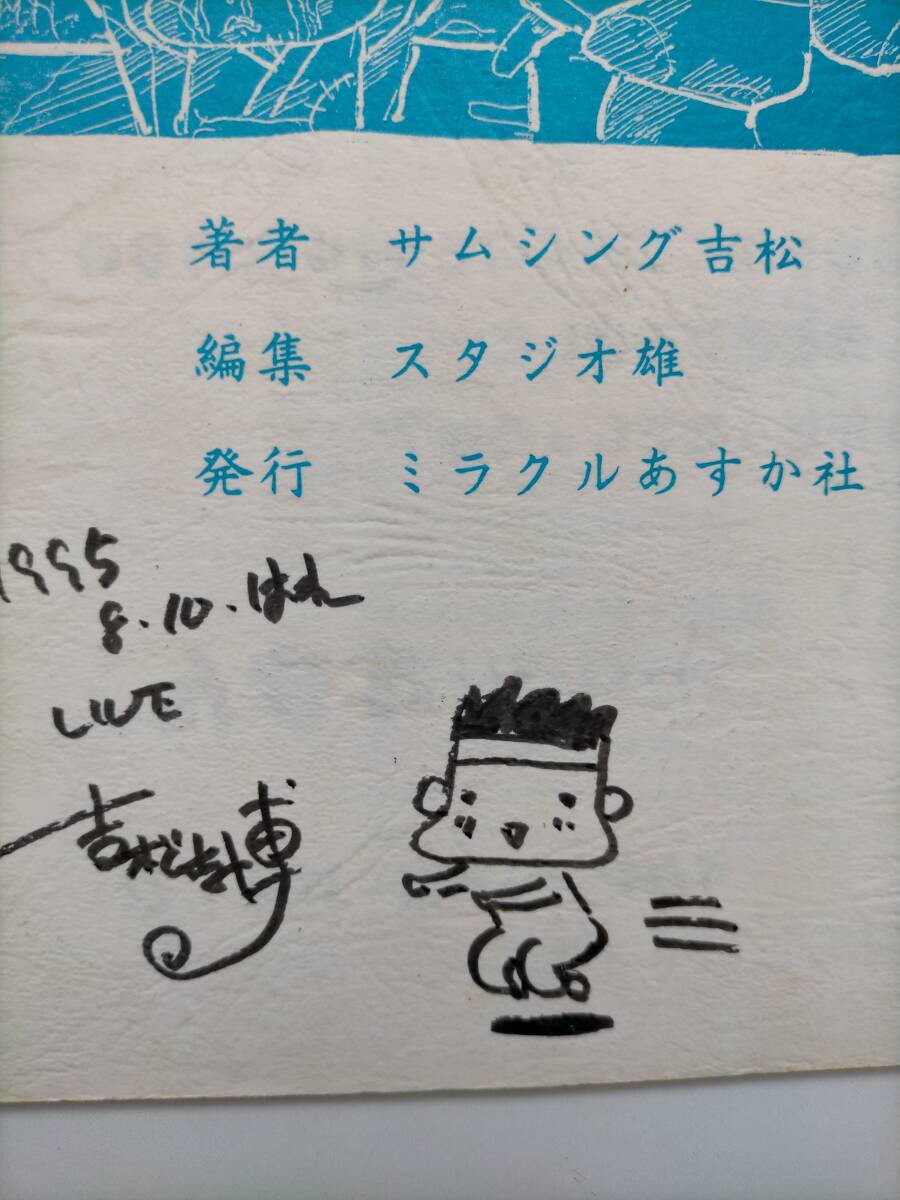 著者 サムシング吉松
編集 スタジオ雄
発行 ミラクルあすか社
1995
8.10.はれ
LIVE
吉松孝博